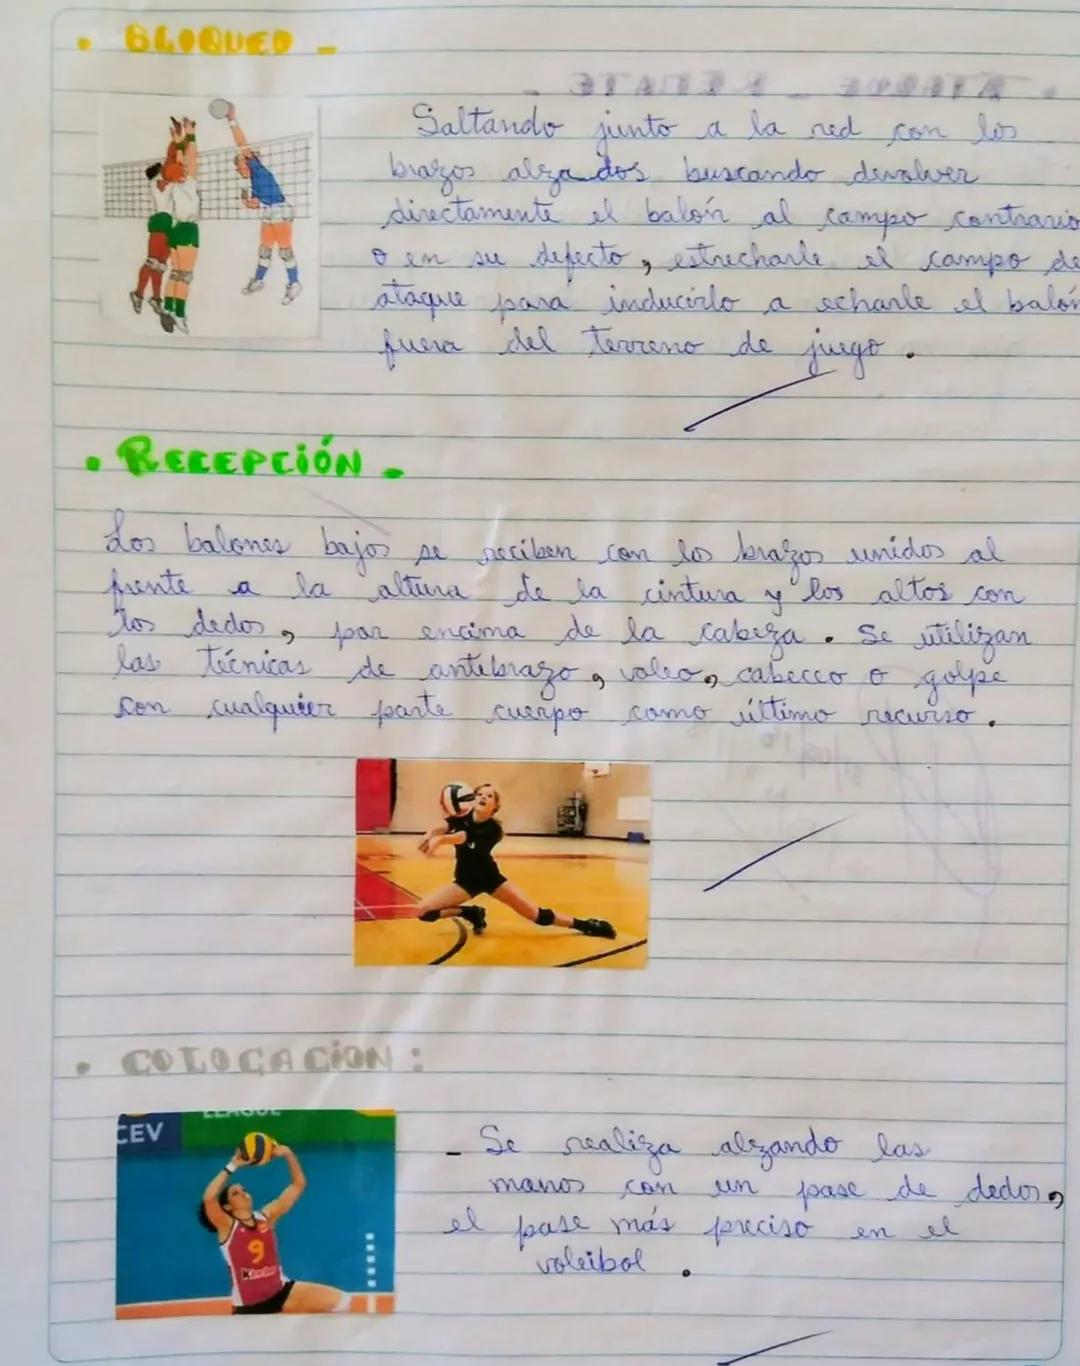 • BLOQUEO -
Saltando junto a la red con los
brazos alzados buscando devolver
directamente el balón al campo contrario
o en su defecto, estrecharle el campo de
ataque para inducirlo a echarle el balón
fuera del terreno de juego.
• RECEPCIÓN -
Los balones bajos se reciben con los brazos unidos al
frente a la altura de la cintura y los altos con
los dedos, por encima de la cabeza. Se utilizan
las técnicas de antebrazo, voleo, cabeceo o golpe
con cualquier parte cuerpo como último recurso.
• COLOCACION:
CEV
LEAGUE
9
- Se realiza alzando las
manos con un pase de dedos,
el pase más preciso en el
voleibol.